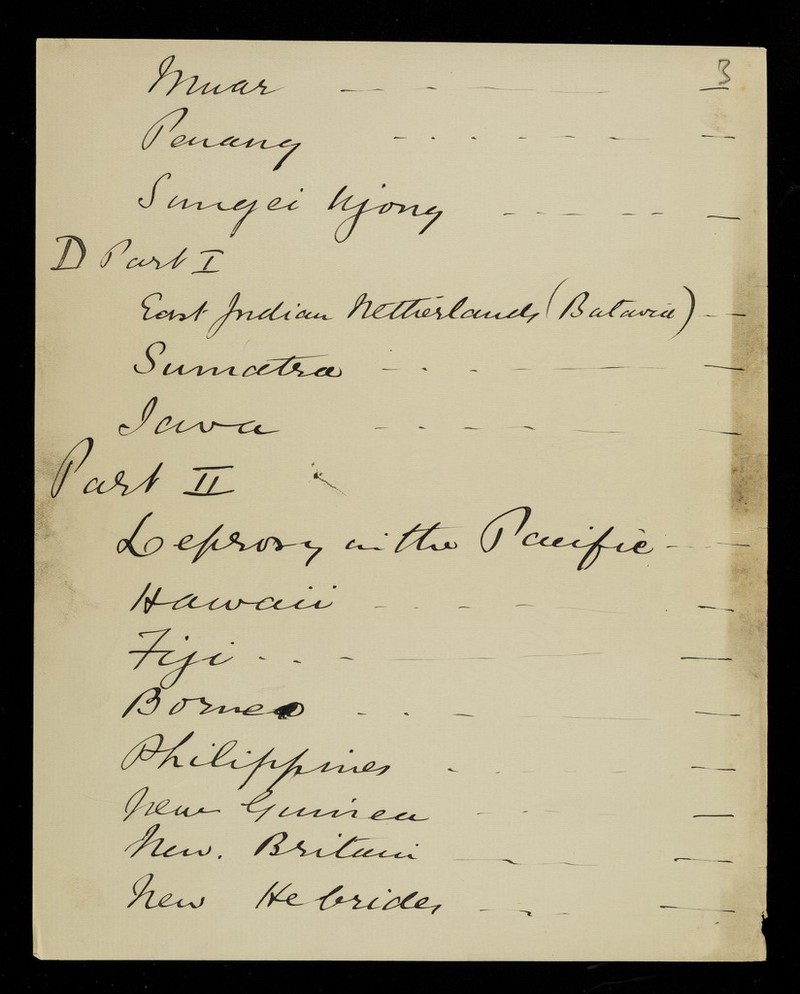 Muar — - — — — 3
Penang - - - - - — —
Sungei Ujong - - - - - —
D Part I
East Indian Netherlands (Batavia) - —
Sumatra - - - - — —
Java - - - - — —
Part II
Leprosy in the Pacific - - —
Hawaii - - - - — —
Fiji - - - — —
Borneo - - - — —
Philippines - - - - —
New Guinea - - - — —
New. Britain — - — —
New Hebrides - - - —